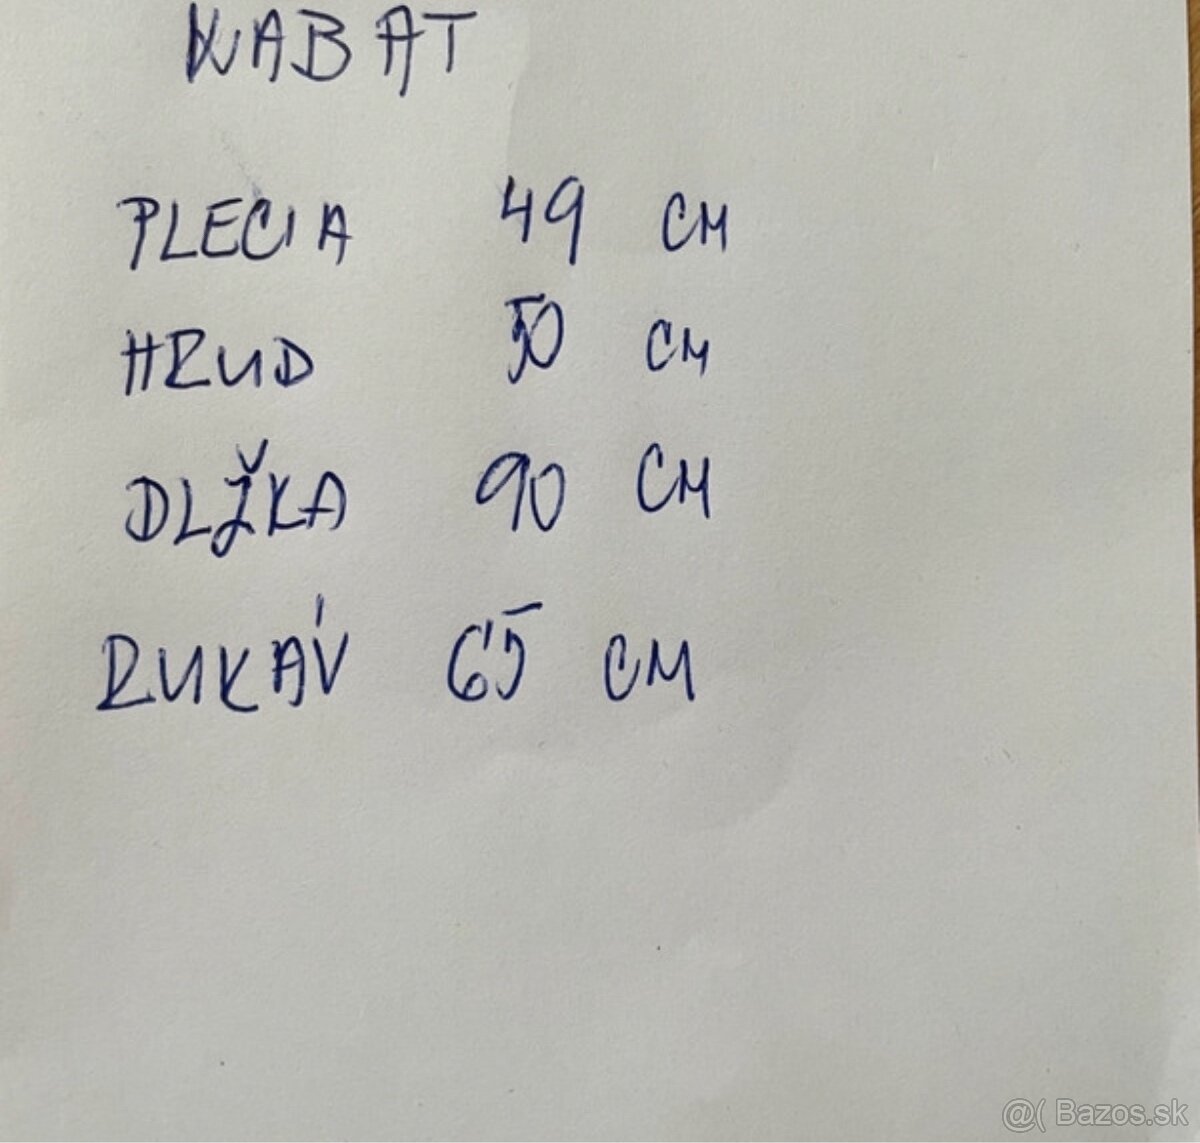 KABAT
PLECIA 49 CM
HRUD 50 CM
DLŽKA 90 CM
RUKÁV 65 CM
@( Bazos.sk